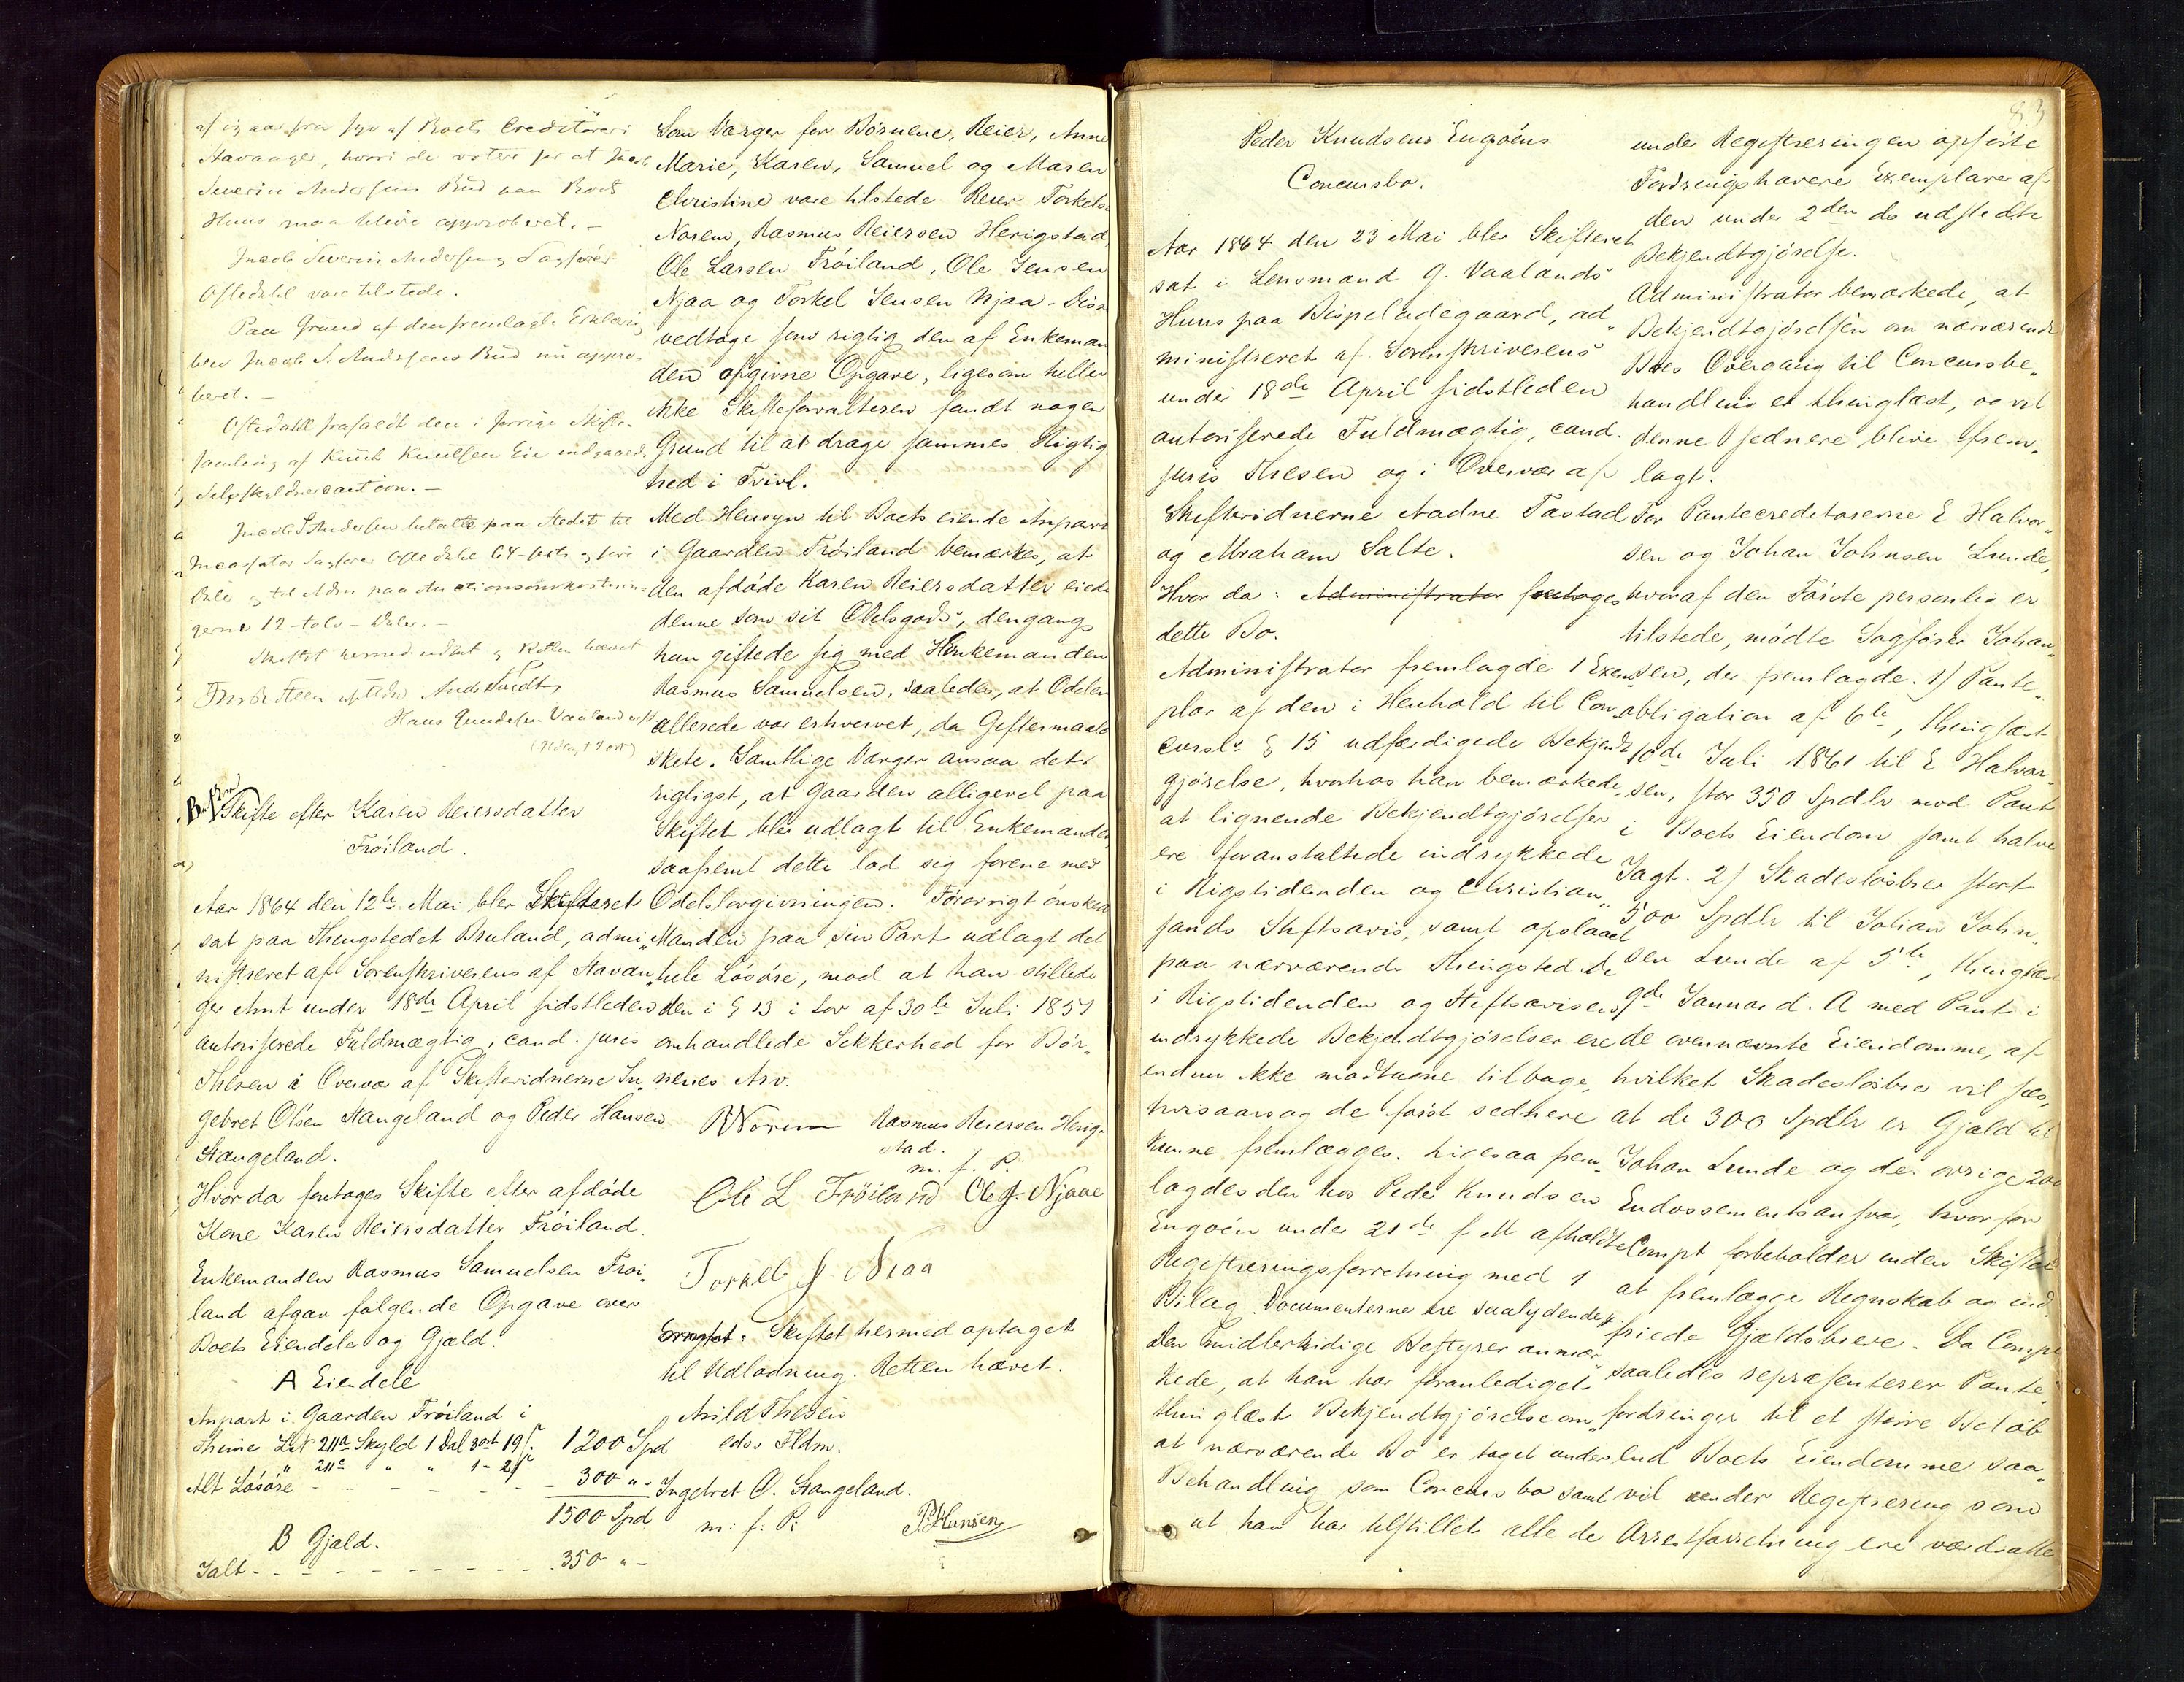 af igaar fra hos af Boets Creditorer i
Stavanger, hvori de votere for at Jacob
Severin Andersens Bud paa Boets
Huus maa blive approberet. –
Jacob Severin Andersen og Sagfører
Oftedahl vare tilstede.
Paa Grund af den fremlagte Erklæring
blev Jacob S. Andersens Bud nu appro-
beret. –
Oftedahl frafaldt den i forrige Skifte-
samling af Knut Knutsen Eie indgaaede
Selvskyldnercaution. –
Jacob S Andersen betalte paa Stedet til
Incassator Sagfører Oftedahl 64
og til paa Auctionsomkostnin-
gerne 12 – tolv – Daler. –
hermed endt og Retten hævet
Hans Gundersen Vaaland
Skifte efter Karen Reiersdatter
Frøiland.
Aar 1864 den 12te Mai blev Skifteret
sat paa Thingstedet Bruland, admi„
nistreret af Sorenskriverens af Stavan„
ger Amt under 18de April sidstleden
autoriserede Fuldmægtig, cand. juris
Thesen i Overvær af Skiftevidnerne In„
gebret Olsen Stangeland og Peder Hansen
Stangeland.
Hvor da foretoges Skifte efter afdøde
Kone Karen Reiersdatter Frøiland.
Enkemanden Rasmus Samuelsen Frøi„
land afgav følgende Opgave over
Boets Eiendele og Gjæld.
A Eiendele
Anpart i Gaarden Frøiland i
Thime L.N. 211a Skyld 1 Dal 3 ort 19 s. 1200 Spd
" 211c " " 1 - 21
Alt Løsøre - - - - - - 300 " -
1500 Spd
B Gjæld.
Ialt - - - - - - - - - - 350 " -
Som Værger for Børnene, Reier, Anne
Marie, Karen, Samuel og Maren
Christine vare tilstede Reier Torkels
Noren, Rasmus Reiersen Herigstad,
Ole Larsen Frøiland, Ole Jensen
Njaa og Torkel Jensen Njaa. Disse
vedtoge som rigtig den af Enkeman
den opgivne Opgave, ligesom heller
ikke Skifteforvalteren fandt nogen
Grund til at drage sammes Rigtig
hed i Tvivl.
Med Hensyn til Boets eiende Anpart
i Gaarden Frøiland bemærkes, at
den afdøde Karen Reiersdatter eiede
denne som sit Odelsgods, dengang
hun giftede sig med Enkemanden
Rasmus Samuelsen, saaledes, at Odelen
allerede var erhvervet, da Giftermaalet
skete. Samtlige Værger ansaa det
rigtigst, at Gaarden alligevel paa
Skiftet blev udlagt til Enkemanden
saafremt dette lod sig forene med
Odelslovgivningen. Forøvrigt ønskede
Manden paa sin Part udlagt det
hele Løsøre, mod at han stillede
den i § 13 i Lov af 30te Juli 1851
omhandlede Sikkerhed for Bør„
nenes Arv.
R Noren Rasmus Reiersen Herig-
stad.
m. f. P.
Ole L Frøiland Ole J. Njaae
Torkell J Niaa
Skiftet hermed optaget
til Udlodning. Retten hævet.
Arild Thesen
edsv Fldm.
Ingebret O. Stangeland.
m: f: P: P. Hansen
83
Peder Knudsens Engøens
Concursbo.
Aar 1864 den 23 Mai blev Skifteret
sat i Lensmand G. Vaalands
Huus paa Bispeladegaard, ad„
ministreret af Sorenskriverens
under 18de April sidstleden
autoriserede Fuldmægtig, cand.
juris Thesen og i Overvær af
Skiftevidnerne Aadne Tastad
og Abraham Salte.
Hvor da: Administrator foretoges
dette Bo.
Administrator fremlagde 1 Exem„
plar af den i Henhold til Con„
cursl: § 15 udfærdigede Bekjendt
gjørelse, hvorhos han bemærkede,
at lignende Bekjendtgjørelser
ere foranstaltede indrykkede
i Rigstidenden og Christian„
sands Stiftsavis, samt opslaaet
paa nærværende Thingsted. De
i Rigstidenden og Stiftsavisen
indrykkede Bekjendtgjørelser ere
endnu ikke modtagne tilbage,
hvisaarsag de først sednere
kunne fremlægges. Ligesaa frem„
lagdes den hos Peder Knudsen
Engøen under 21de f. M afholdte
Registreringsforretning med 1
Bilag. Documenterne ere saalydende:
Den midlertidige Bestyrer anmær„
kede, at han har foranlediget
thinglæst Bekjendtgjørelse om
at nærværende Bo er taget under
Behandling som Concursbo samt
at han har tilstillet alle de
under Registreringen opførte
Fordringshavere Exemplarer af
den under 2den ds udstedte
Bekjendtgjørelse.
Administrator bemærkede, at
Bekjendtgjørelsen om nærværende
Boes Overgang til Concursbe„
handling er thinglæst, og vil
denne sednere blive frem„
lagt.
For Pantecreditorerne E Halvor„
sen og Johan Johnsen Lunde,
hvoraf den Første personlig er
tilstede, mødte Sagfører Johan„
sen, der fremlagde: 1) Pante„
obligation af 6te, thinglæst
10de Juli 1861 til E Halvor„
sen, stor 350 Spdlr mod Pant
i Boets Eiendom samt halve
Jagt. 2) Skadesløsbrev stort
500 Spdlr til Johan John„
sen Lunde af 5te, thinglæst
9de Januar d. A med Pant i
de ovennævnte Eiendomme, af
hvilket Skadesløsbrev vil sees,
at de 300 Spdlr er Gjæld til
Johan Lunde og de øvrige 200
Endossementsansvar, hvorfor
Compt forbeholder inden Skiftet
at fremlægge Regnskab og ind„
friede Gjældsbreve. Da Compt
saaledes repræsenterer Pante„
fordringer til et større Beløb
end Boets Eiendomme saa„
vel under Registrering som
Arrestforretning ere værdsatte